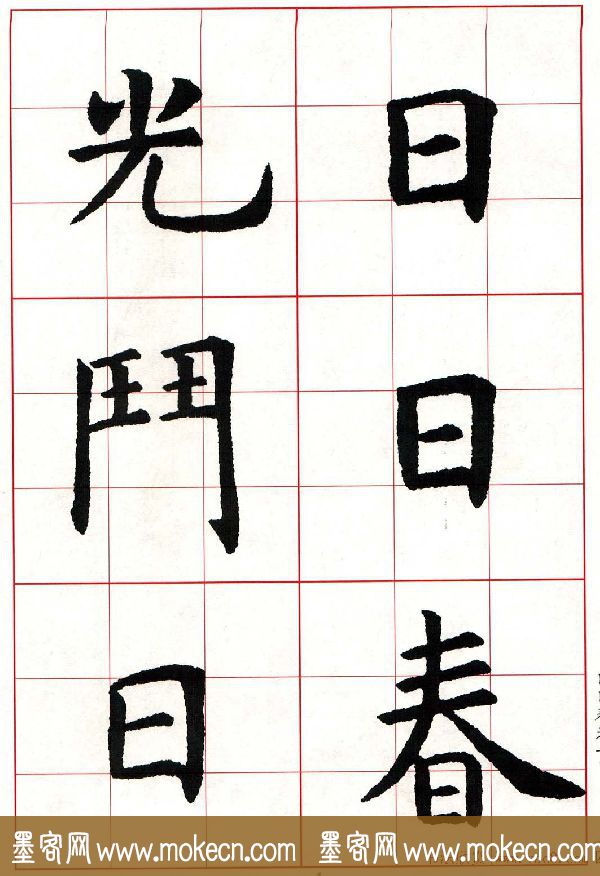 日日春
光鬥日
墨客网 www.mokecn.com 墨客网 www.mokecn.com